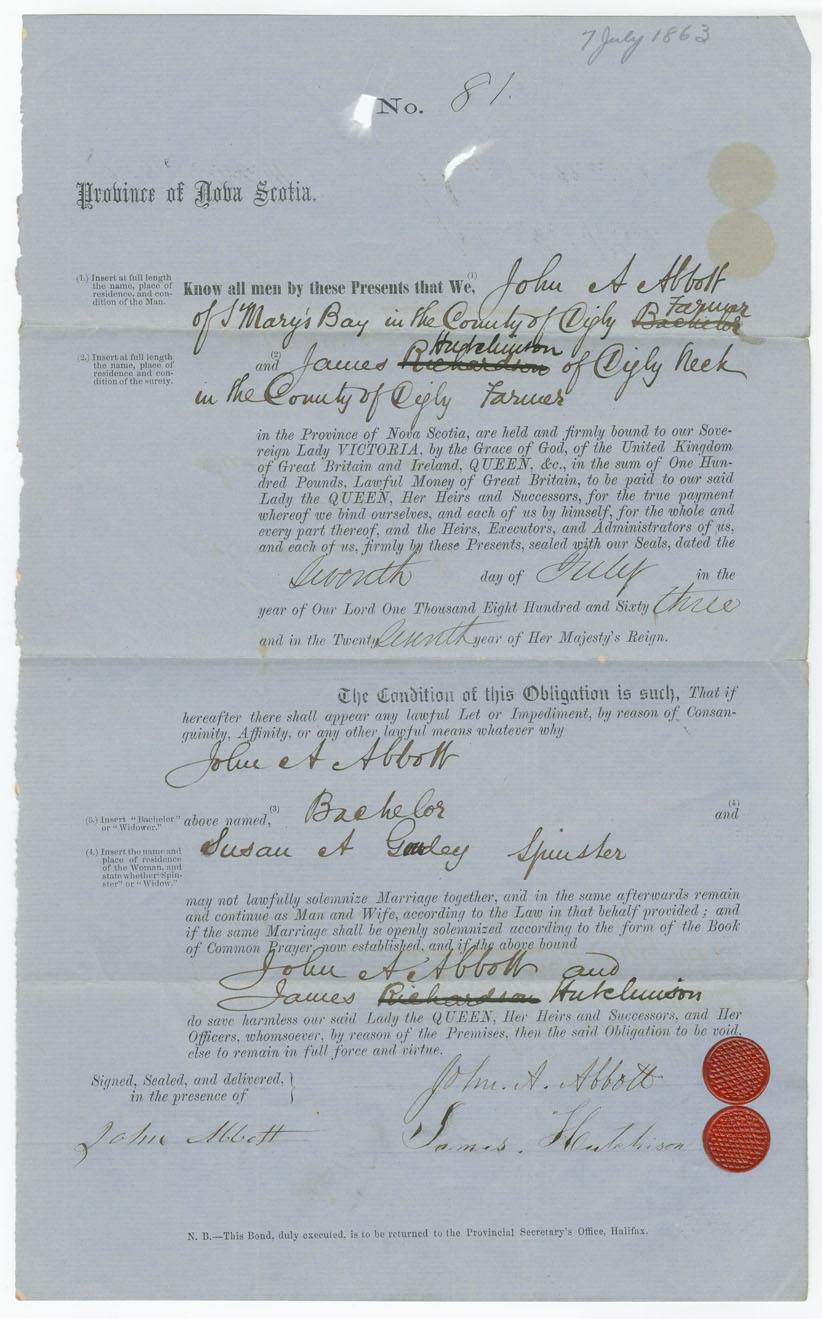 7 July 1863
No. 81.
Province of Nova Scotia.
(1.) Insert at full length the name, place of residence, and condition of the Man.
Know all men by these Presents that We, (1) John A Abbott
of St Mary's Bay in the County of Digby Bachelor Farmer
(2.) Insert at full length the name, place of residence and condition of the surety.
and (2) James Richardson Hutchinson of Digby Neck
in the County of Digby Farmer
in the Province of Nova Scotia, are held and firmly bound to our Sove-
reign Lady VICTORIA, by the Grace of God, of the United Kingdom
of Great Britain and Ireland, QUEEN, &c., in the sum of One Hun-
dred Pounds, Lawful Money of Great Britain, to be paid to our said
Lady the QUEEN, Her Heirs and Successors, for the true payment
whereof we bind ourselves, and each of us by himself, for the whole and
every part thereof, and the Heirs, Executors, and Administrators of us,
and each of us, firmly by these Presents, sealed with our Seals, dated the
Seventh day of July in the
year of Our Lord One Thousand Eight Hundred and Sixty three
and in the Twenty Seventh year of Her Majesty's Reign.
The Condition of this Obligation is such, That if
hereafter there shall appear any lawful Let or Impediment, by reason of Consan-
guinity, Affinity, or any other lawful means whatever why
John A Abbott
(3.) Insert "Bachelor" or "Widower."
above named, (3) Bachelor (4) and
(4.) Insert the name and place of residence of the Woman, and state whether "Spinster" or "Widow."
Susan A Spinster
may not lawfully solemnize Marriage together, and in the same afterwards remain
and continue as Man and Wife, according to the Law in that behalf provided; and
if the same Marriage shall be openly solemnized according to the form of the Book
of Common Prayer now established, and if the above bound
John A Abbott and
James Richardson Hutchinson
do save harmless our said Lady the QUEEN, Her Heirs and Successors, and Her
Officers, whomsoever, by reason of the Premises, then the said Obligation to be void,
else to remain in full force and virtue.
Signed, Sealed, and delivered, in the presence of
John. A. Abbott
John Abbott
James. Hutchison
N. B.—This Bond, duly executed, is to be returned to the Provincial Secretary's Office, Halifax.